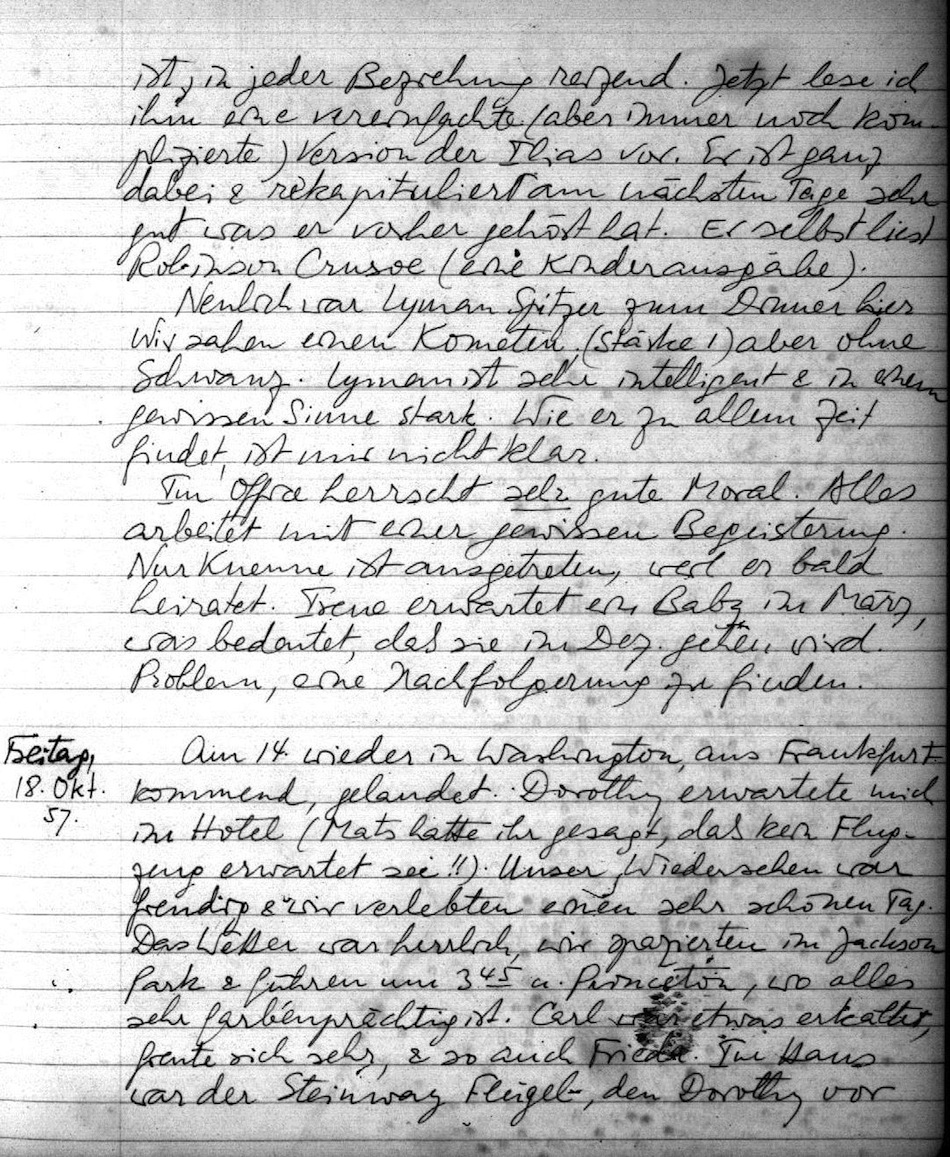 ist, in jeder Beziehung reizend. Jetzt lese ich
ihm eine vereinfachte (aber immer noch kom-
plizierte) Version der Ilias vor. Er ist ganz
dabei & rekapituliert am nächsten Tage sehr
gut was er vorher gehört hat. Er selbst liest
Robinson Crusoe (eine Kinderausgabe).
Neulich war Lyman Spitzer zum Dinner hier
Wir sahen einen Kometen (Stärke 1) aber ohne
Schwanz. Lyman ist sehr intelligent & in einem
gewissen Sinne stark. Wie er zu allem Zeit
findet, ist mir nicht klar.
Im Office herrscht sehr gute Moral. Alles
arbeitet mit einer gewissen Begeisterung.
Nur Kuenne ist ausgetreten, weil er bald
heiratet. Irene erwartet ein Baby im März,
was bedeutet, daß sie im Dez. gehen wird.
Problem, eine Nachfolgerung zu finden.
Freitag,
18. Okt.
57.
Am 14 wieder in Washington, aus Frankfurt
kommend, gelandet. Dorothy erwartete mich
im Hotel (Mats hatte ihr gesagt, daß kein Flug-
zeug erwartet sei!!). Unser Wiedersehen war
freudig & wir verlebten einen sehr schönen Tag.
Das Wetter war herrlich, wir spazierten im Jackson
Park & fuhren um 3 45 n. Princeton, wo alles
sehr farbenprächtig ist. Carl war etwas erkältet,
freute sich sehr, & so auch Frieda. Im Haus
war der Steinway Flügel, den Dorothy vor